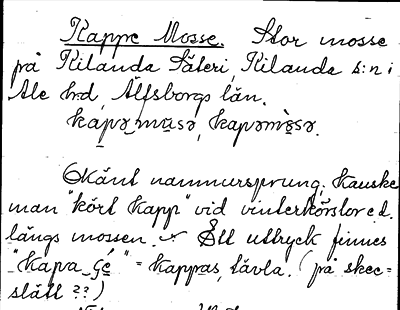 Kappe Mosse. Stor mosse
på Kilanda Säteri, Kilanda s:n i
Ale hd, Älfsborgs län.
kapə musə, kapəmòsə.
Okänt namnursprung, kanske
man "kört kapp" vid vinterkörslor e.d.
längs mossen. Ett uttryck finnes
"kapa gé" = kappas, tävla. (på skec-
slätt ??)